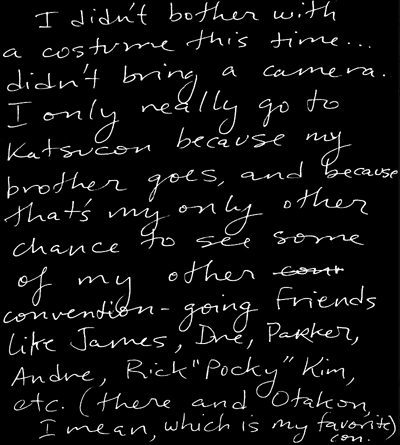 I didn't bother with
a costume this time...
didn't bring a camera.
I only really go to
Katsucon because my
brother goes, and because
that's my only other
chance to see some
of my other cont
convention-going friends
like James, Dre, Parker,
Andre, Rick "Pocky" Kim,
etc. (there and Otakon,
I mean, which is my favorite)
con.